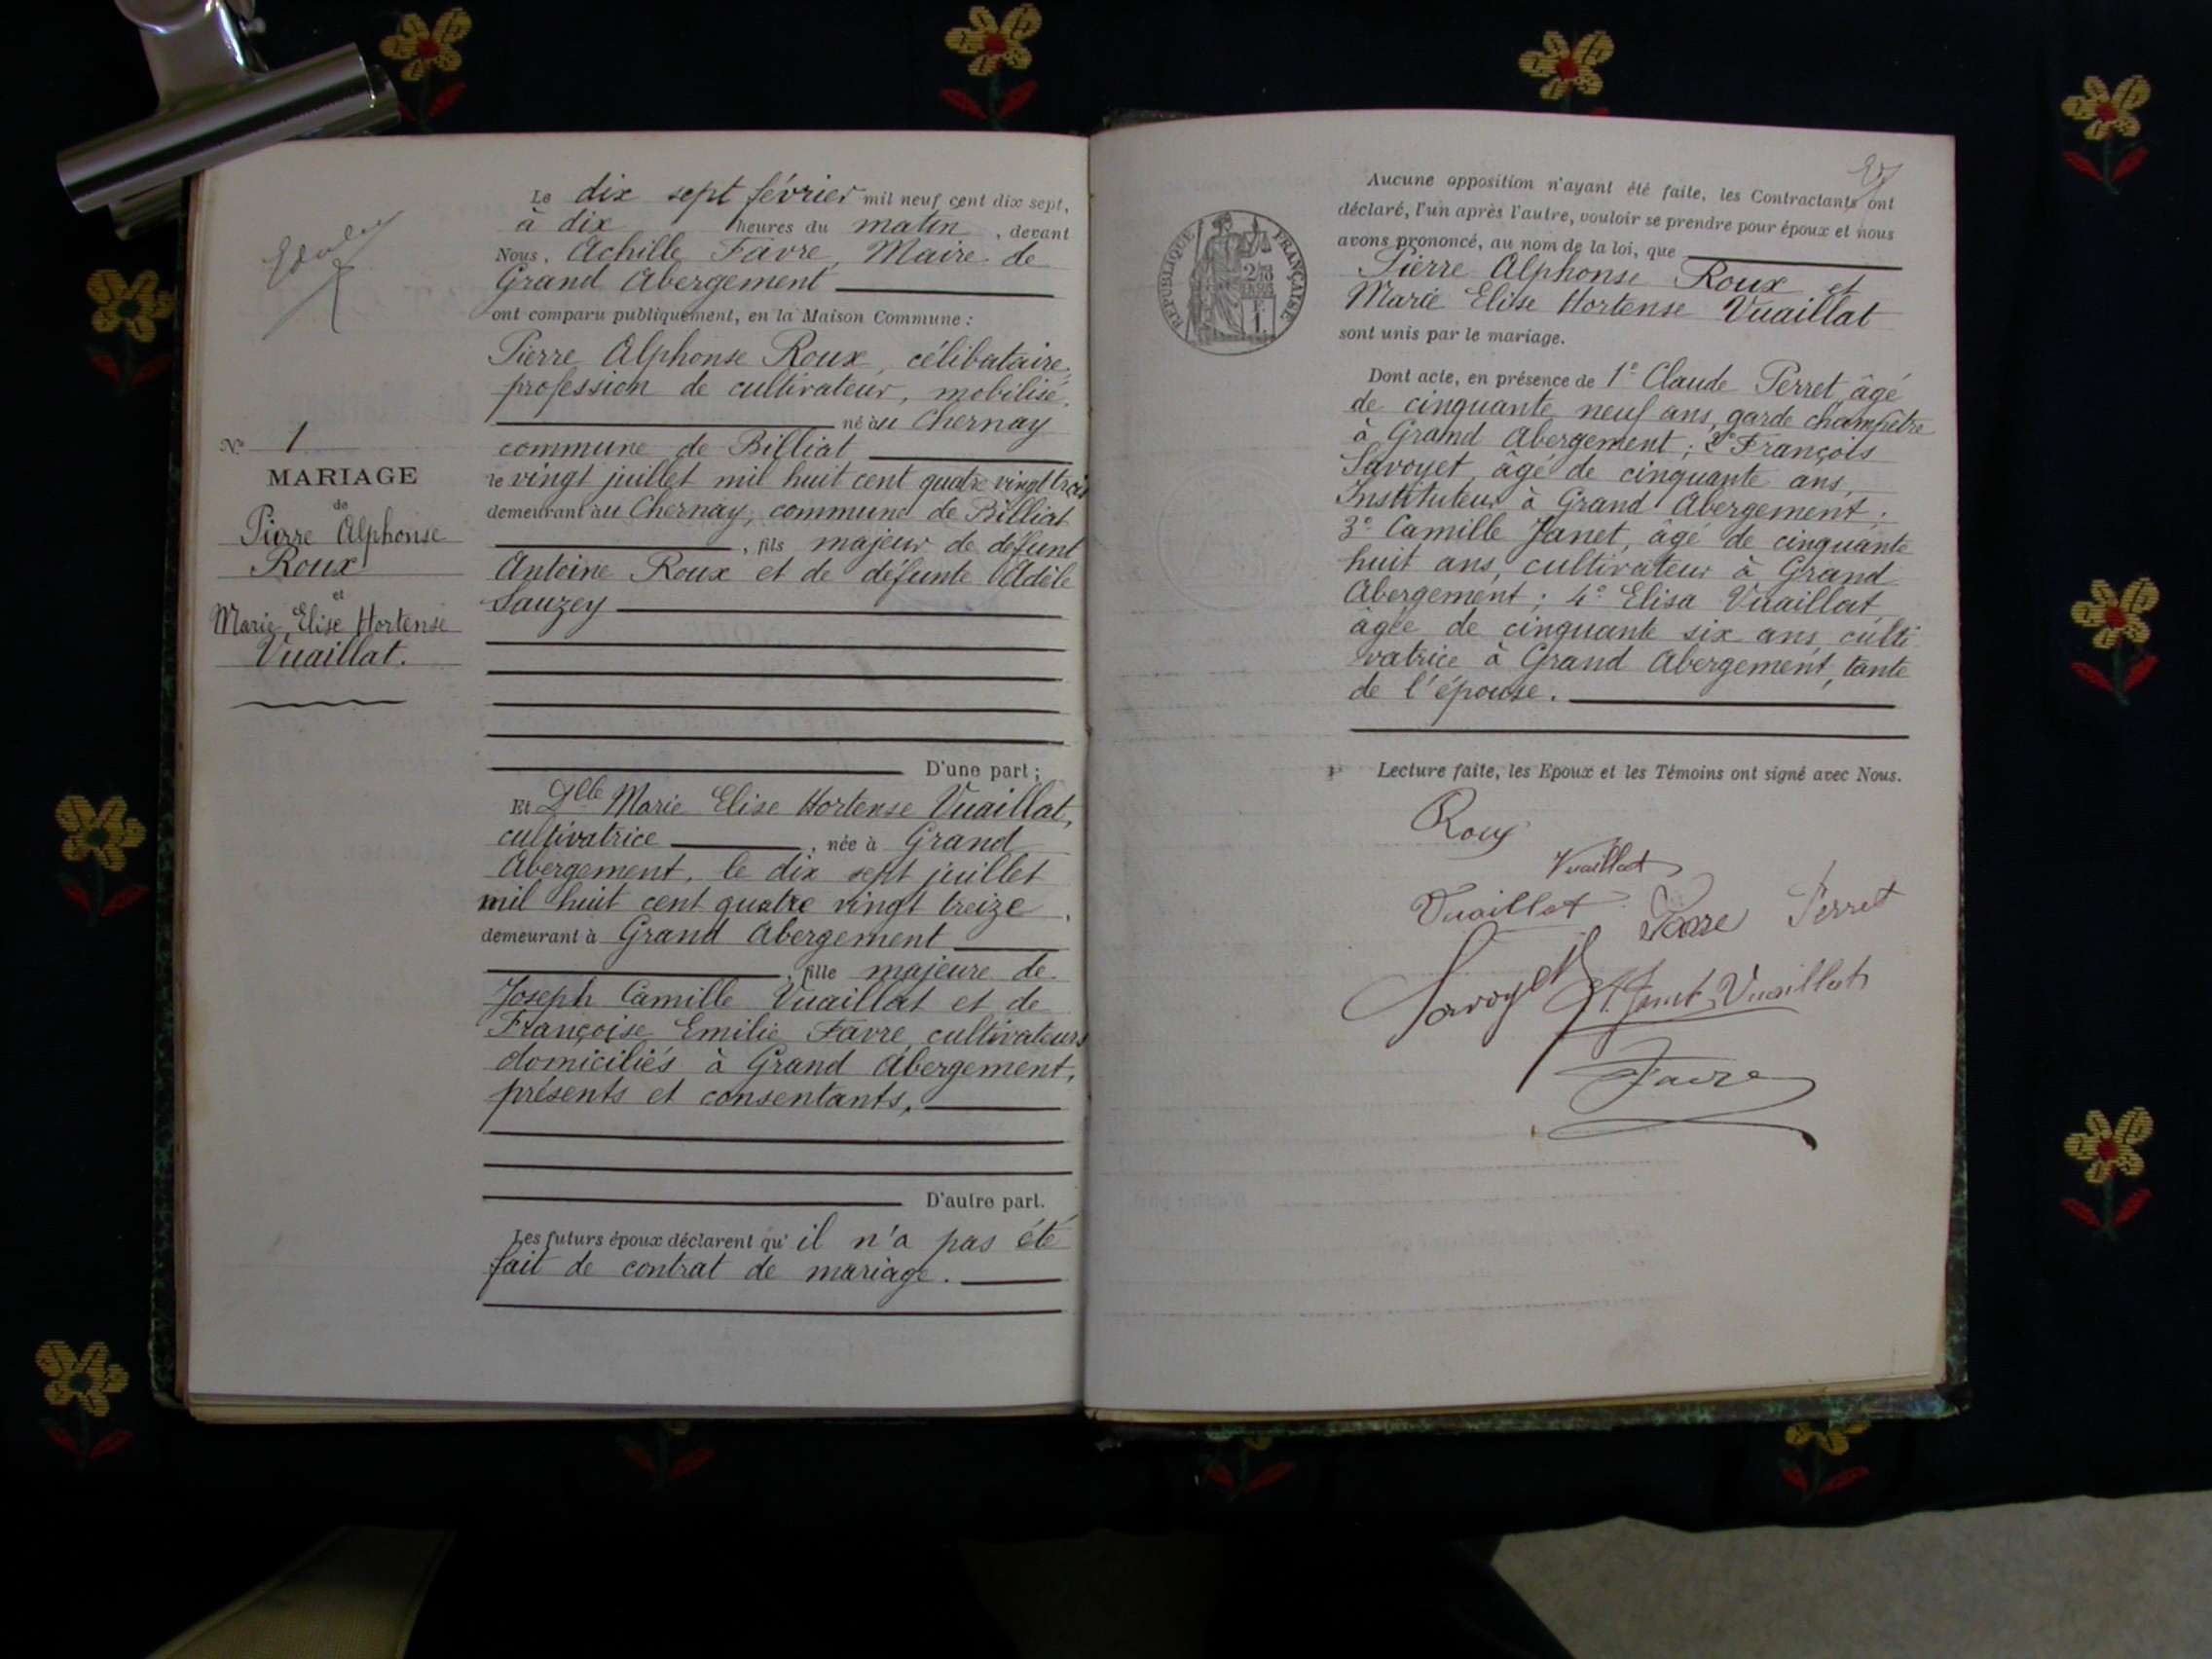 Le dix sept février mil neuf cent dix sept,
à dix heures du matin, devant
Nous, Achille Favre, Maire de
Grand Abergement
ont comparu publiquement, en la Maison Commune :
Pierre Alphonse Roux, célibataire,
profession de cultivateur, mobilisé,
né au Chernay
commune de Billiat
le vingt juillet mil huit cent quatre vingt trois
demeurant au Chernay, commune de Billiat
, fils majeur de défunt
Antoine Roux et de défunte Adèle
Sauzey
D'une part ;
Et Dlle Marie Elise Hortense Vuaillat,
cultivatrice, née à Grand
Abergement, le dix sept juillet
mil huit cent quatre vingt treize,
demeurant à Grand Abergement
, fille majeure de
Joseph Camille Vuaillat et de
Françoise Emilie Favre, cultivateurs
domiciliés à Grand Abergement,
présents et consentants,
D'autre part.
Les futurs époux déclarent qu'il n'a pas été
fait de contrat de mariage.
No 1
MARIAGE
de
Pierre Alphonse
Roux
et
Marie Elise Hortense
Vuaillat.
Aucune opposition n'ayant été faite, les Contractants ont
déclaré, l'un après l'autre, vouloir se prendre pour époux et nous
avons prononcé, au nom de la loi, que
Pierre Alphonse Roux et
Marie Elise Hortense Vuaillat
sont unis par le mariage.
RÉPUBLIQUE FRANÇAISE
Dont acte, en présence de 1° Claude Perret âgé
de cinquante neuf ans, garde champêtre
à Grand Abergement ; 2° François
Savoyet, âgé de cinquante ans,
Instituteur à Grand Abergement ;
3° Camille Janet, âgé de cinquante
huit ans, cultivateur à Grand
Abergement ; 4° Elisa Vuaillat,
âgée de cinquante six ans, culti
vatrice à Grand Abergement, tante
de l'épouse.
Lecture faite, les Epoux et les Témoins ont signé avec Nous.
Roux
Vuaillat
Vuaillat Favre Perret
Savoyet Janet Vuaillat
Favre